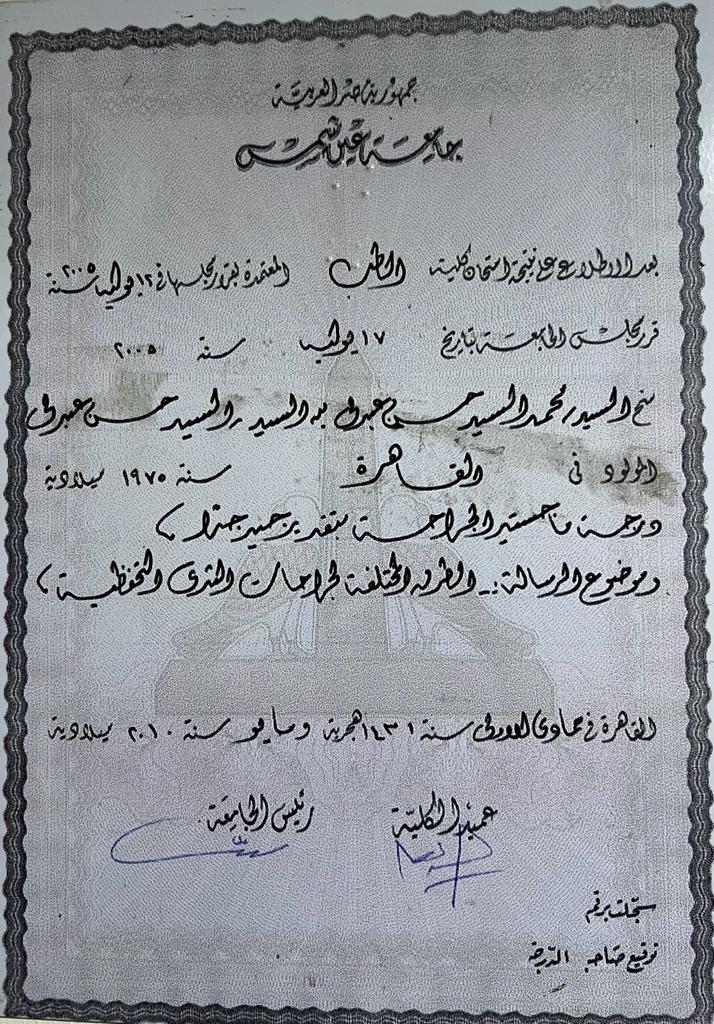 جمهورية مصر العربية
جامعة عين شمس
بعد الاطلاع على نتيجة امتحان كلية الطب المعتمدة بقرار مجلسها فى ١٢ يوليه سنة ٢٠٠٥
قرر مجلس الجامعة بتاريخ ١٧ يوليه سنة ٢٠٠٥
منح السيد / محمد السيد حسن عبدلى بن السيد / السيد حسن عبدلى
المولود فى القاهرة سنة ١٩٧٥ ميلادية
درجة ماجستير الجراحة بتقدير جيد جدا ،
وموضوع الرسالة :- الطرق المختلفة لجراحات الثدى التحفظية ،
القاهرة فى جمادى الأولى سنة ١٤٣١ هجرية ومايو سنة ٢٠١٠ ميلادية
عميد الكلية رئيس الجامعة
سجلت برقم
توقيع صاحب الدرجة